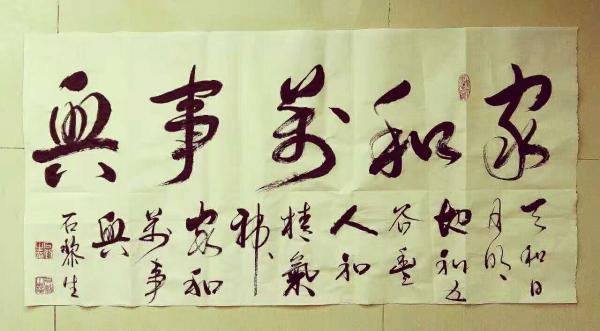 家和萬事興
天和日
月明、
地和五
谷豐
人和
精氣
神、
家和
萬事
興
石黎生